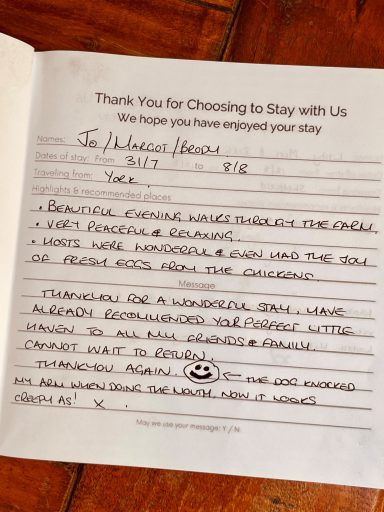 Thank You for Choosing to Stay with Us
We hope you have enjoyed your stay
Names: JO / MARGOT / BRODY
Dates of stay: From 31/7 to 8/8
Traveling from: YORK
Highlights & recommended places
• BEAUTIFUL EVENING WALKS THROUGH THE FARM.
• VERY PEACEFUL & RELAXING.
• HOSTS WERE WONDERFUL & EVEN HAD THE JOY
OF FRESH EGGS FROM THE CHICKENS.
Message
THANKYOU FOR A WONDERFUL STAY, HAVE
ALREADY RECOMMENDED YOR PERFECT LITTLE
HAVEN TO ALL MY FRIENDS & FAMILY.
CANNOT WAIT TO RETURN.
THANKYOU AGAIN. ← THE DOG KNOCKED
MY ARM WHEN DOING THE MOUTH, NOW IT LOOKS
CREEPY AS! X .
May we use your message: Y / N